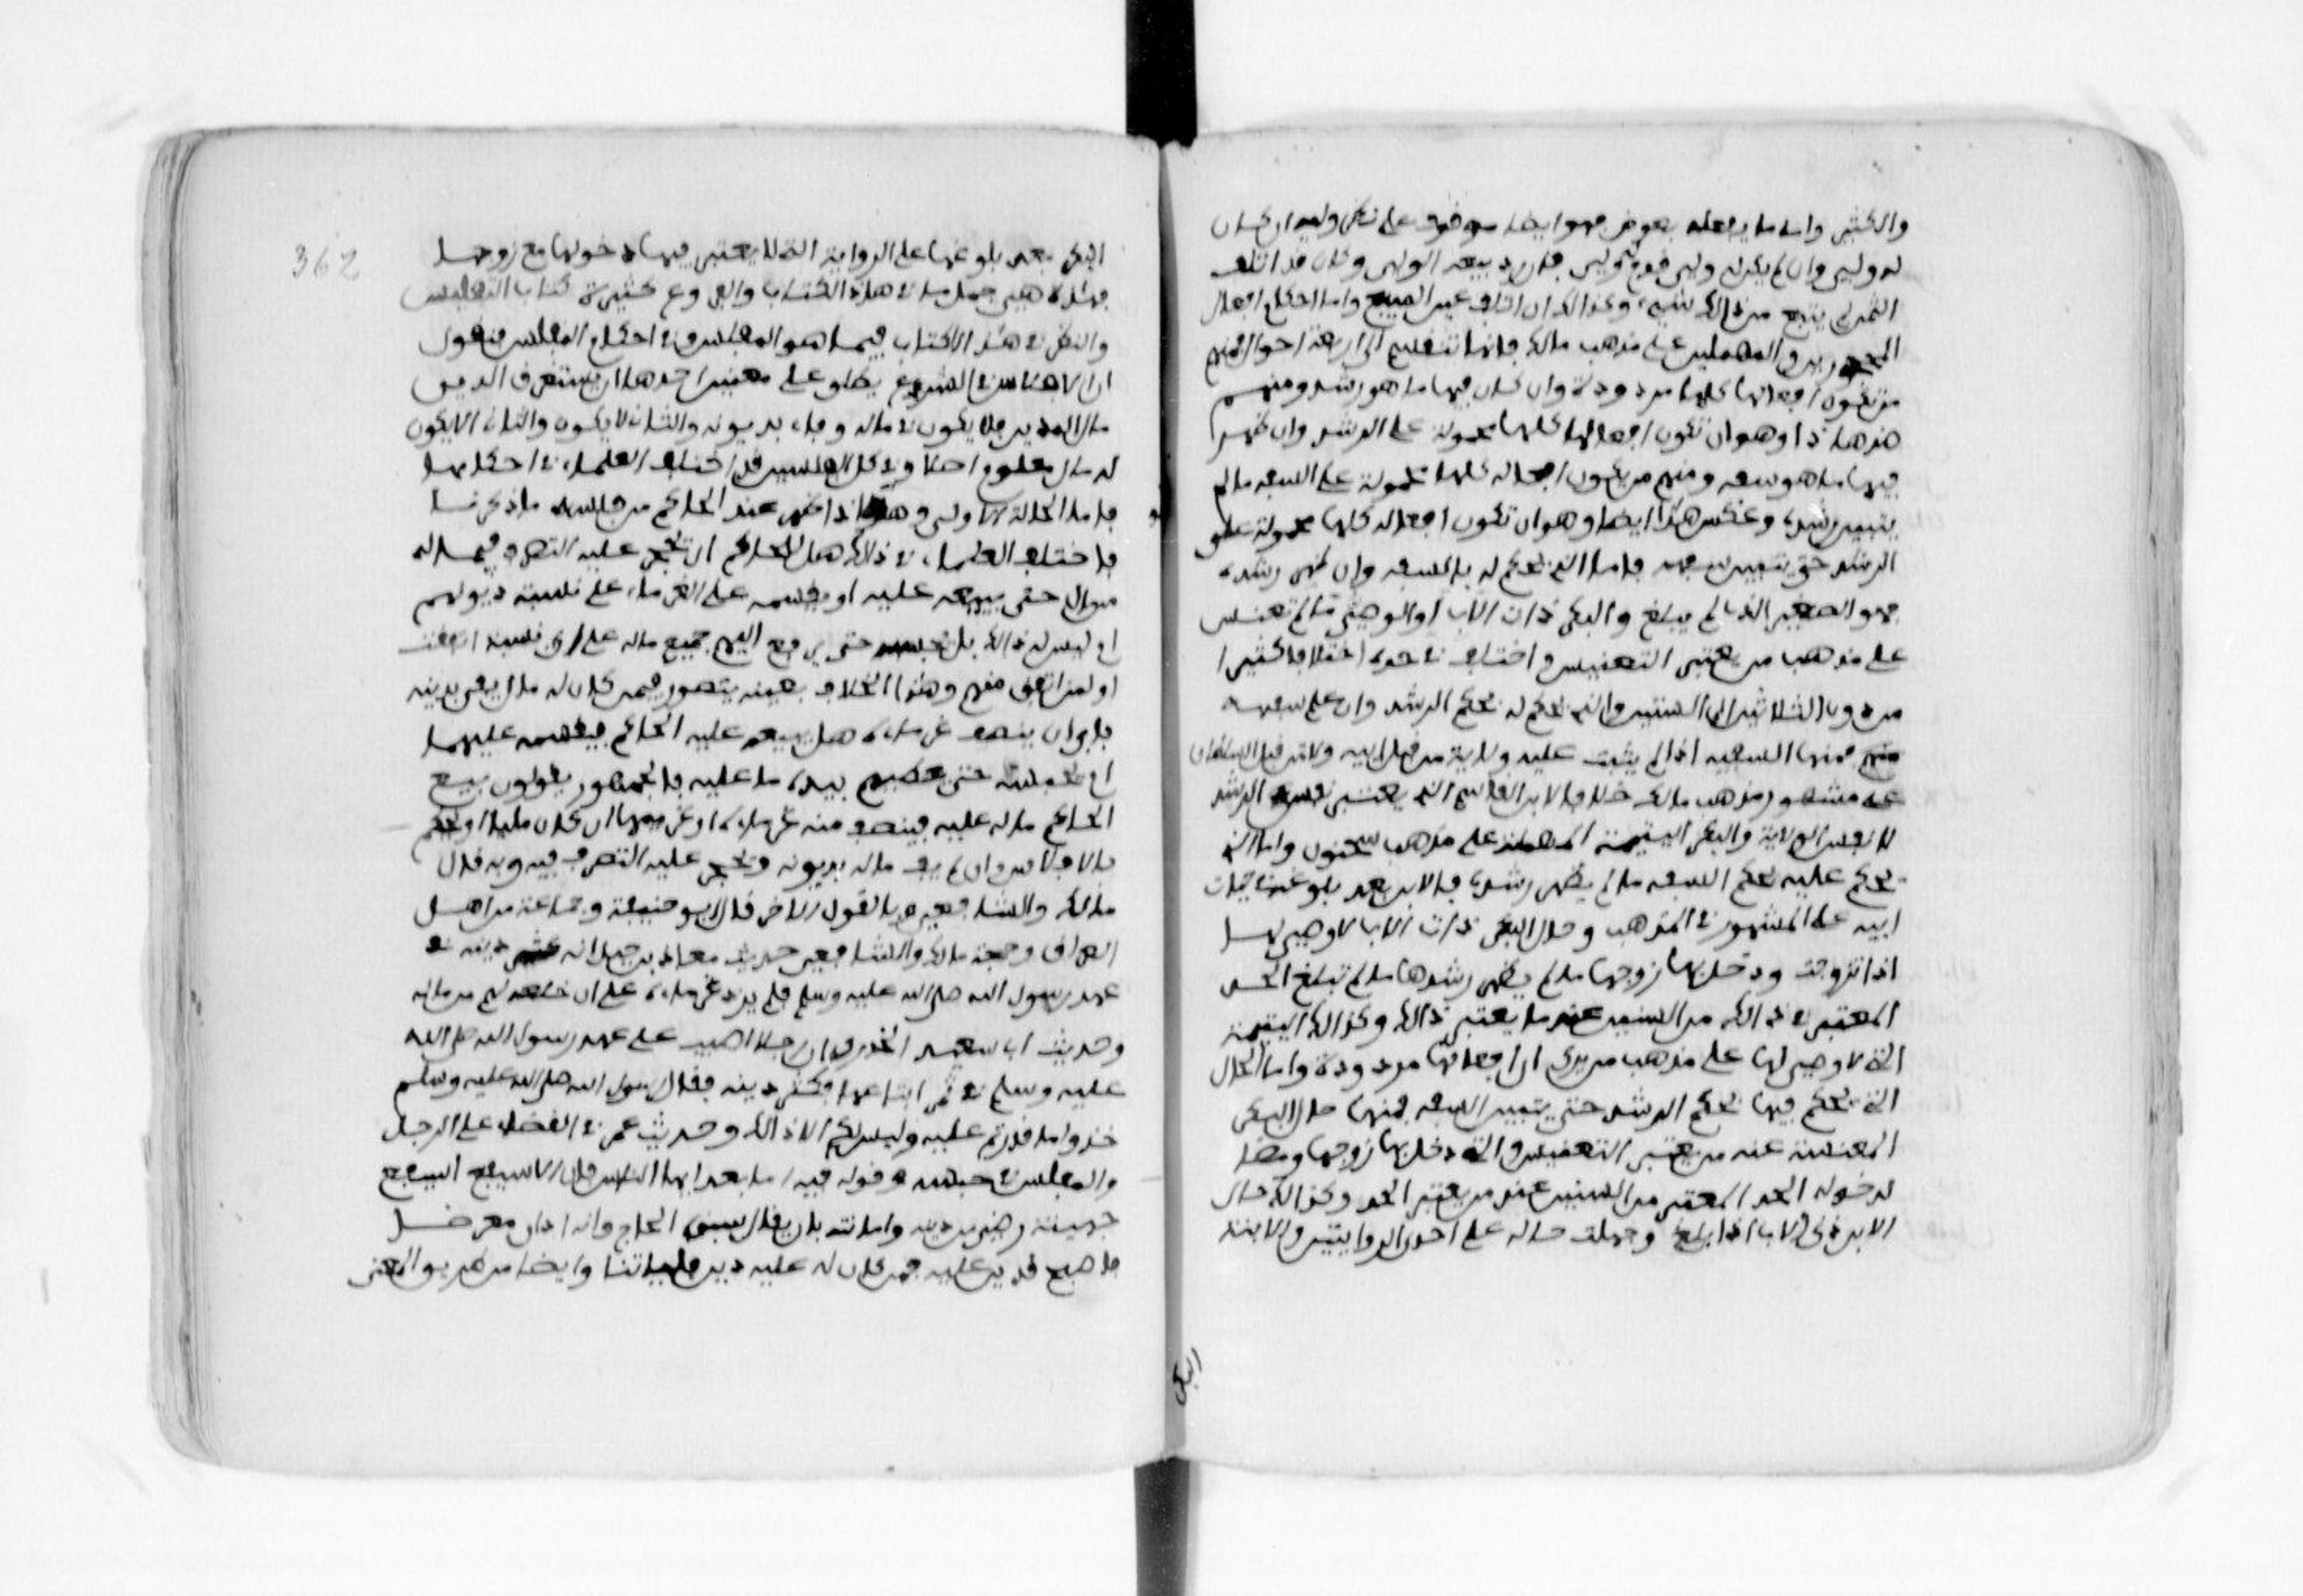 والكثير واما ما يفعله بعوض فهو ايضا موقوف على نظر وليه ان كان
له ولي وان لم يكن له ولي قدم له ولي فان رد بيعه الولي وكان قد اتلف
الثمن لم يتبع من ذالك بشيء وكذالك ان اتلف عين المبيع واما احكام افعال
المحجورين والمهملين على مذهب مالك فانها تنقسم الى اربعة احوال فمنهم
من تكون افعالها كلها مردودة وان كان فيها ما هو رشد ومنهم
ضد هذا وهو ان تكون افعالها كلها محمولة على الرشد وان ظهر
فيها ما هو سفه ومنهم من تكون افعاله كلها محمولة على السفه ما لم
يتبين رشده وعكس هذا ايضا وهو ان تكون افعاله كلها محمولة على
الرشد حتى يتبين سفهه فاما الذي يحكم له بالسفه وان ظهر رشده
فهو الصغير الذي لم يبلغ والبكر ذات الاب والوصي ما لم تعنس
على مذهب من يعتبر التعنيس واختلف في حده اختلافا كثيرا
من دون الثلاثين الى الستين والذي يحكم له بحكم الرشد وان علم سفهه
فمنها السفيه اذا لم يثبت عليه ولاية من قبل ابيه ولا من قبل السلطان
على مشهور مذهب مالك خلافا لابن القاسم الذي يعتبر نفس الرشد
لا نفس الولاية والبكر اليتيمة المهملة على مذهب سحنون واما الذي
يحكم عليه بحكم السفه ما لم يظهر رشده فالابن بعد بلوغه في حياة
ابيه على المشهور في المذهب وحال البكر ذات الاب لا وصي لها
اذا تزوجت ودخل بها زوجها ما لم يظهر رشدها ما لم تبلغ الحد
المعتبر في ذالك من السنين عند من يعتبر ذالك وكذالك اليتيمة
التي لا وصي لها على مذهب من يرى ان افعالها مردودة واما الحال
التي يحكم فيها بحكم الرشد حتى يتبين السفه فمنها حال البكر
المعنسة عند من يعتبر التعنيس والتي دخل بها زوجها ومضى
لدخوله الحد المعتبر من السنين عند من يعتبر الحد وكذالك حال
الابن ذي الاب اذا بلغ وجهلت حاله على احدى الروايتين والابنة
البكر
البكر بعد بلوغها على الرواية التي لا يعتبر فيها دخولها مع زوجها
فهذه هي جمل ما في هذا الكتاب والفروع كثيرة كتاب التفليس
والنظر في هذا الكتاب فيما هو المفلس وفي احكام المفلس فنقول
ان الافلاس في الشرع يطلق على معنيين احدهما ان يستغرق الدين
مال المدين فلا يكون في ماله وفاء بديونه والثاني لا يكون والثاني الا يكون
له مال معلوم اصلا وفي كلى الفلسين قد اختلف العلماء في احكامهما
فاما الحالة الاولى وهي اذا ظهر عند الحاكم من فلسه ما ذكرنا
فاختلف العلماء في ذالك هل للحاكم ان يحجر عليه التصرف فيما له
من مال حتى يبيعه عليه او يقسمه على الغرماء على نسبة ديونهم
ام ليس له ذالك بل يحبسه حتى يدفع اليهم جميع ماله على اي نسبة اتفقت
او لمن اتفق منهم وهذا الخلاف بعينه يتصور فيمن كان له مال يفي بدينه
فابى ان ينصف غرماءه هل يبيع عليه الحاكم فيقسمه عليهما
ام يحبسه حتى يعطيهم بيده ما عليه فالجمهور يقولون يبيع
الحاكم ماله عليه فينصف منه غرماءه او غريمه ان كان مليا او يحكم
بالافلاس وان لم يف ماله بديونه ويحجر عليه التصرف فيه وبه قال
مالك والشافعي وبالقول الاخر قال ابو حنيفة وجماعة من اهل
العراق وحجة مالك والشافعي حديث معاذ بن جبل انه كثر دينه في
عهد رسول الله صلى الله عليه وسلم فلم يزد غرماءه على ان خلعه لهم من ماله
وحديث ابي سعيد الخدري ان رجلا اصيب على عهد رسول الله صلى الله
عليه وسلم في ثمر ابتاعها فكثر دينه فقال رسول الله صلى الله عليه وسلم
خذوا ما وجدتم عليه وليس لكم الا ذالك وحديث عمر في القضاء على الرجل
والمفلس في حبسه وقوله فيه اما بعد ايها الناس فان الاسيفع اسيفع
جهينة رضي من دينه وامانته بان يقال سبق الحاج وانه ادان معرضا
فاصبح قد رين عليه فمن كان له عليه دين فلياتنا وايضا من طريق المعنى
362